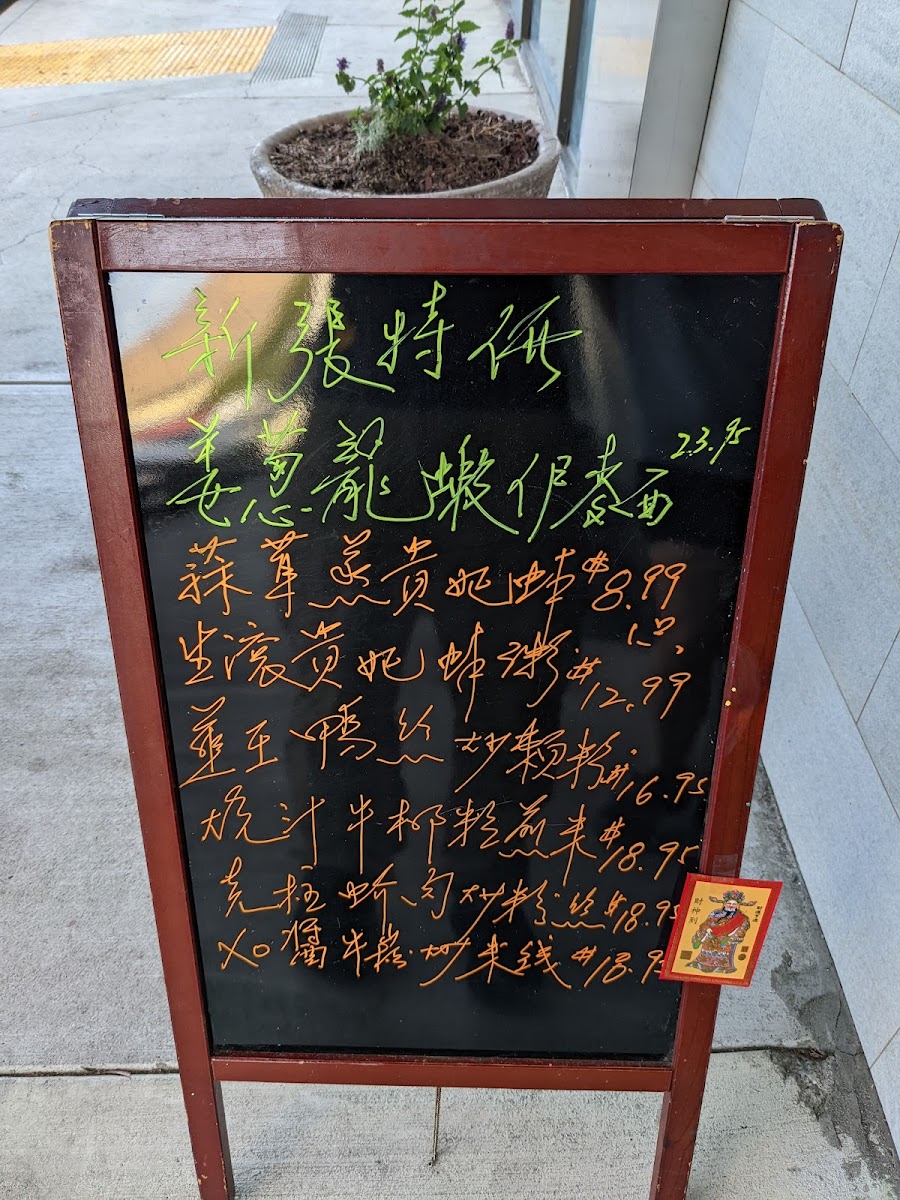 新張特價
姜葱龍蝦伊麵 23.95
蒜茸蒸貴妃蚌 $8.99
生滾貴妃蚌粥 $12.99
鴨絲炒賴粉 $16.95
燒汁牛柳粒煎米 $18.95
蚧肉炒粉絲 $18.95
XO醬牛崧炒米线 $18.95
財神到